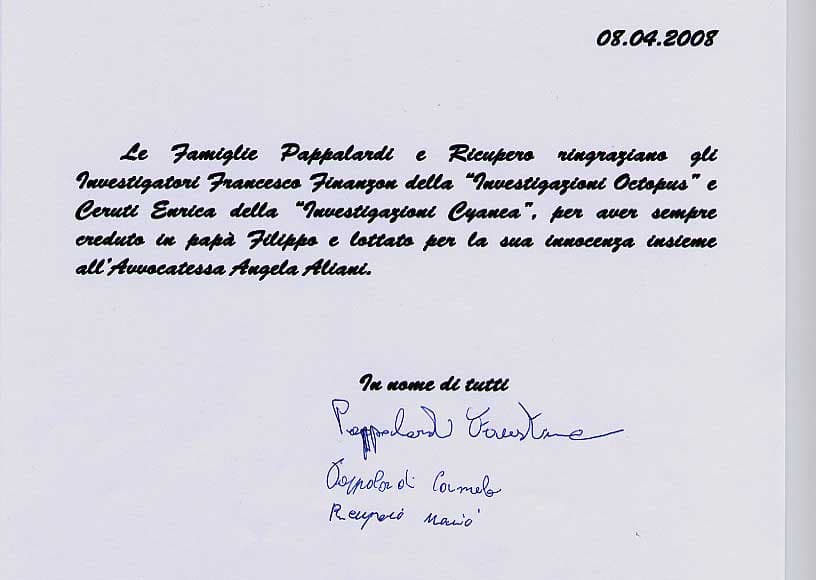 08.04.2008
Le Famiglie Pappalardi e Ricupero ringraziano gli
Investigatori Francesco Finanzon della "Investigazioni Octopus" e
Ceruti Enrica della "Investigazioni Cyanea", per aver sempre
creduto in papà Filippo e lottato per la sua innocenza insieme
all'Avvocatessa Angela Aliani.
In nome di tutti
Pappalardi
Pappalardi Carmela
Ricupero Maria